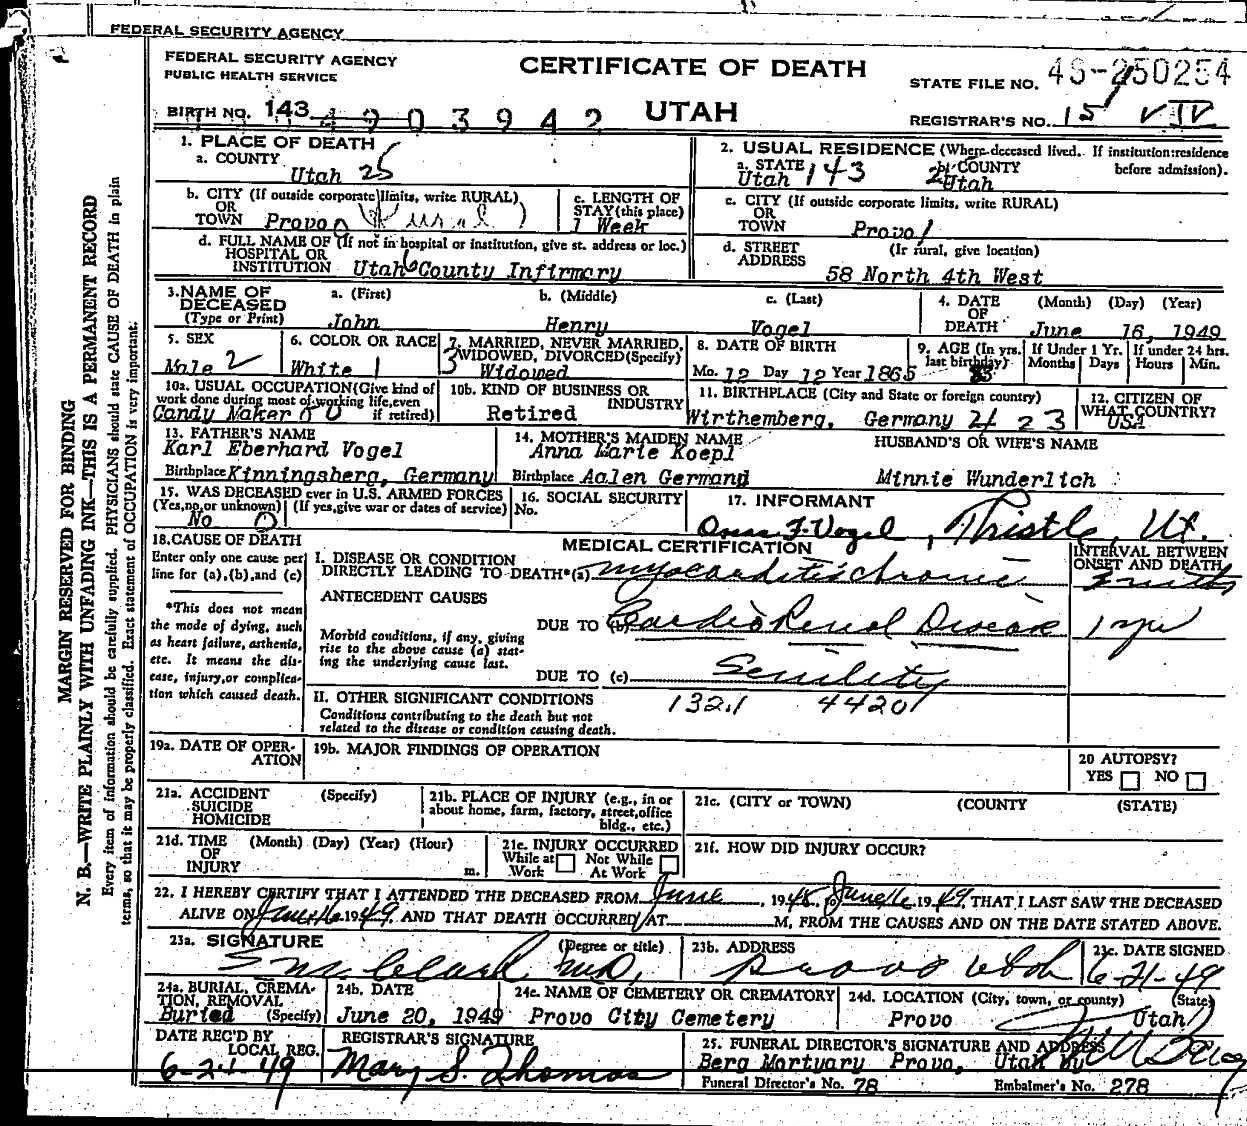 FEDERAL SECURITY AGENCY
FEDERAL SECURITY AGENCY
PUBLIC HEALTH SERVICE
CERTIFICATE OF DEATH
STATE FILE NO. 49-250254
BIRTH NO. 143 4903942 UTAH
REGISTRAR'S NO. 151 V IV
1. PLACE OF DEATH
a. COUNTY
Utah 25
2. USUAL RESIDENCE (Where deceased lived. If institution: residence before admission).
a. STATE Utah 143
b. COUNTY Utah
b. CITY (If outside corporate limits, write RURAL)
OR
TOWN Provo (Rural)
c. LENGTH OF STAY (this place)
1 Week
c. CITY (If outside corporate limits, write RURAL)
OR
TOWN Provo
d. FULL NAME OF (If not in hospital or institution, give st. address or loc.)
HOSPITAL OR
INSTITUTION Utah County Infirmary
d. STREET ADDRESS (If rural, give location)
58 North 4th West
3. NAME OF DECEASED (Type or Print)
a. (First) John
b. (Middle) Henry
c. (Last) Vogel
4. DATE OF DEATH (Month) (Day) (Year)
June 16, 1949
5. SEX
Male 2
6. COLOR OR RACE
White 1
7. MARRIED, NEVER MARRIED, WIDOWED, DIVORCED (Specify)
3 Widowed
8. DATE OF BIRTH
Mo. 12 Day 12 Year 1865
9. AGE (In yrs. last birthday) 83
If Under 1 Yr. Months Days
If under 24 hrs. Hours Min.
10a. USUAL OCCUPATION (Give kind of work done during most of working life, even if retired)
Candy Maker
10b. KIND OF BUSINESS OR INDUSTRY
Retired
11. BIRTHPLACE (City and State or foreign country)
Wirthemberg, Germany 23
12. CITIZEN OF WHAT COUNTRY?
USA
13. FATHER'S NAME
Karl Eberhard Vogel
Birthplace Kinningsberg, Germany
14. MOTHER'S MAIDEN NAME
Anna Marie Koepl
Birthplace Aalen Germand
HUSBAND'S OR WIFE'S NAME
Minnie Wunderlich
15. WAS DECEASED ever in U.S. ARMED FORCES
(Yes, no, or unknown) (If yes, give war or dates of service)
No 0
16. SOCIAL SECURITY No.
17. INFORMANT
F. Vogel, Thistle, Ut.
18. CAUSE OF DEATH
Enter only one cause per line for (a), (b), and (c)
*This does not mean the mode of dying, such as heart failure, asthenia, etc. It means the disease, injury, or complication which caused death.
MEDICAL CERTIFICATION
I. DISEASE OR CONDITION
DIRECTLY LEADING TO DEATH* (a) myocarditis chronic
INTERVAL BETWEEN ONSET AND DEATH
ANTECEDENT CAUSES
Morbid conditions, if any, giving rise to the above cause (a) stating the underlying cause last.
DUE TO (b) Cardio Renal Disease 1 yr
DUE TO (c) Senility
II. OTHER SIGNIFICANT CONDITIONS
Conditions contributing to the death but not related to the disease or condition causing death.
132.1 4420
19a. DATE OF OPERATION
19b. MAJOR FINDINGS OF OPERATION
20 AUTOPSY?
YES NO
21a. ACCIDENT SUICIDE HOMICIDE (Specify)
21b. PLACE OF INJURY (e.g., in or about home, farm, factory, street, office bldg., etc.)
21c. (CITY or TOWN) (COUNTY (STATE)
21d. TIME OF INJURY (Month) (Day) (Year) (Hour) m.
21e. INJURY OCCURRED
While at Work Not While At Work
21f. HOW DID INJURY OCCUR?
22. I HEREBY CERTIFY THAT I ATTENDED THE DECEASED FROM June, 1948, to June 16, 1949, THAT I LAST SAW THE DECEASED
ALIVE ON June 16 1949 AND THAT DEATH OCCURRED AT M, FROM THE CAUSES AND ON THE DATE STATED ABOVE.
23a. SIGNATURE (Degree or title)
Clark M.D.
23b. ADDRESS
Provo Utah
23c. DATE SIGNED
6-21-49
24a. BURIAL, CREMATION, REMOVAL (Specify)
Buried
24b. DATE
June 20, 1949
24c. NAME OF CEMETERY OR CREMATORY
Provo City Cemetery
24d. LOCATION (City, town, or county) (State)
Provo Utah
DATE REC'D BY LOCAL REG.
6-21-49
REGISTRAR'S SIGNATURE
Mary S. Thomas
25. FUNERAL DIRECTOR'S SIGNATURE AND ADDRESS
Berg Mortuary Provo, Utah by Berg
Funeral Director's No. 78
Embalmer's No. 278
MARGIN RESERVED FOR BINDING
N. B.—WRITE PLAINLY WITH UNFADING INK—THIS IS A PERMANENT RECORD
Every item of information should be carefully supplied. PHYSICIANS should state CAUSE OF DEATH in plain
terms, so that it may be properly classified. Exact statement of OCCUPATION is very important.